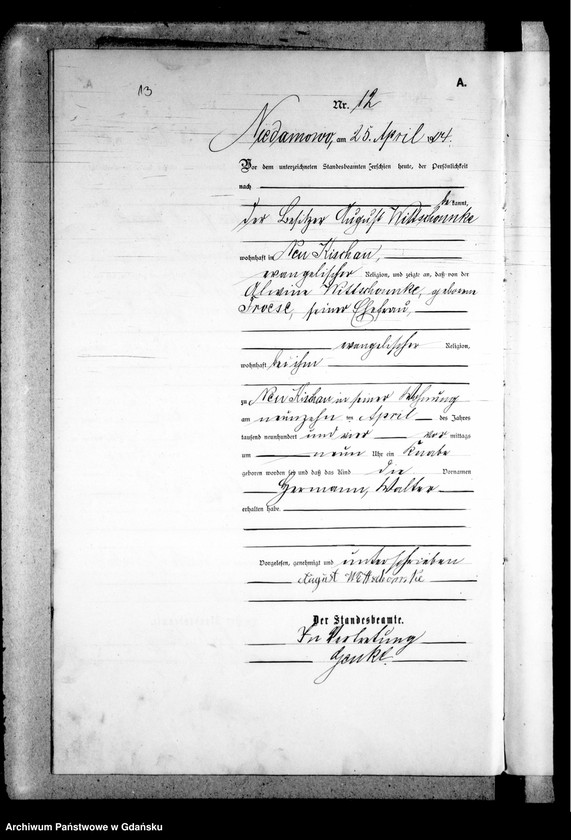 13
A.
Nr. 12
Niedamowo, am 25. April 1904.
Vor dem unterzeichneten Standesbeamten erschien heute, der Persönlichkeit
nach
be kannt,
der Besitzer August Wittschounke
wohnhaft in Neu Kischau,
evangelischer Religion, und zeigte an, daß von der
Alwine Wittschounke, geborenen
Troese, seiner Ehefrau,
evangelischer Religion,
wohnhaft bei ihm
zu Neu Kischau in seiner Wohnung
am neunzehn ten April des Jahres
tausend neunhundert und vier vor mittags
um neun Uhr ein Knabe
geboren worden sei und daß das Kind die Vornamen
Hermann, Walter
erhalten habe.
Vorgelesen, genehmigt und unterschrieben
August Wittschounke
Der Standesbeamte.
In Vertretung
Archiwum Państwowe w Gdańsku